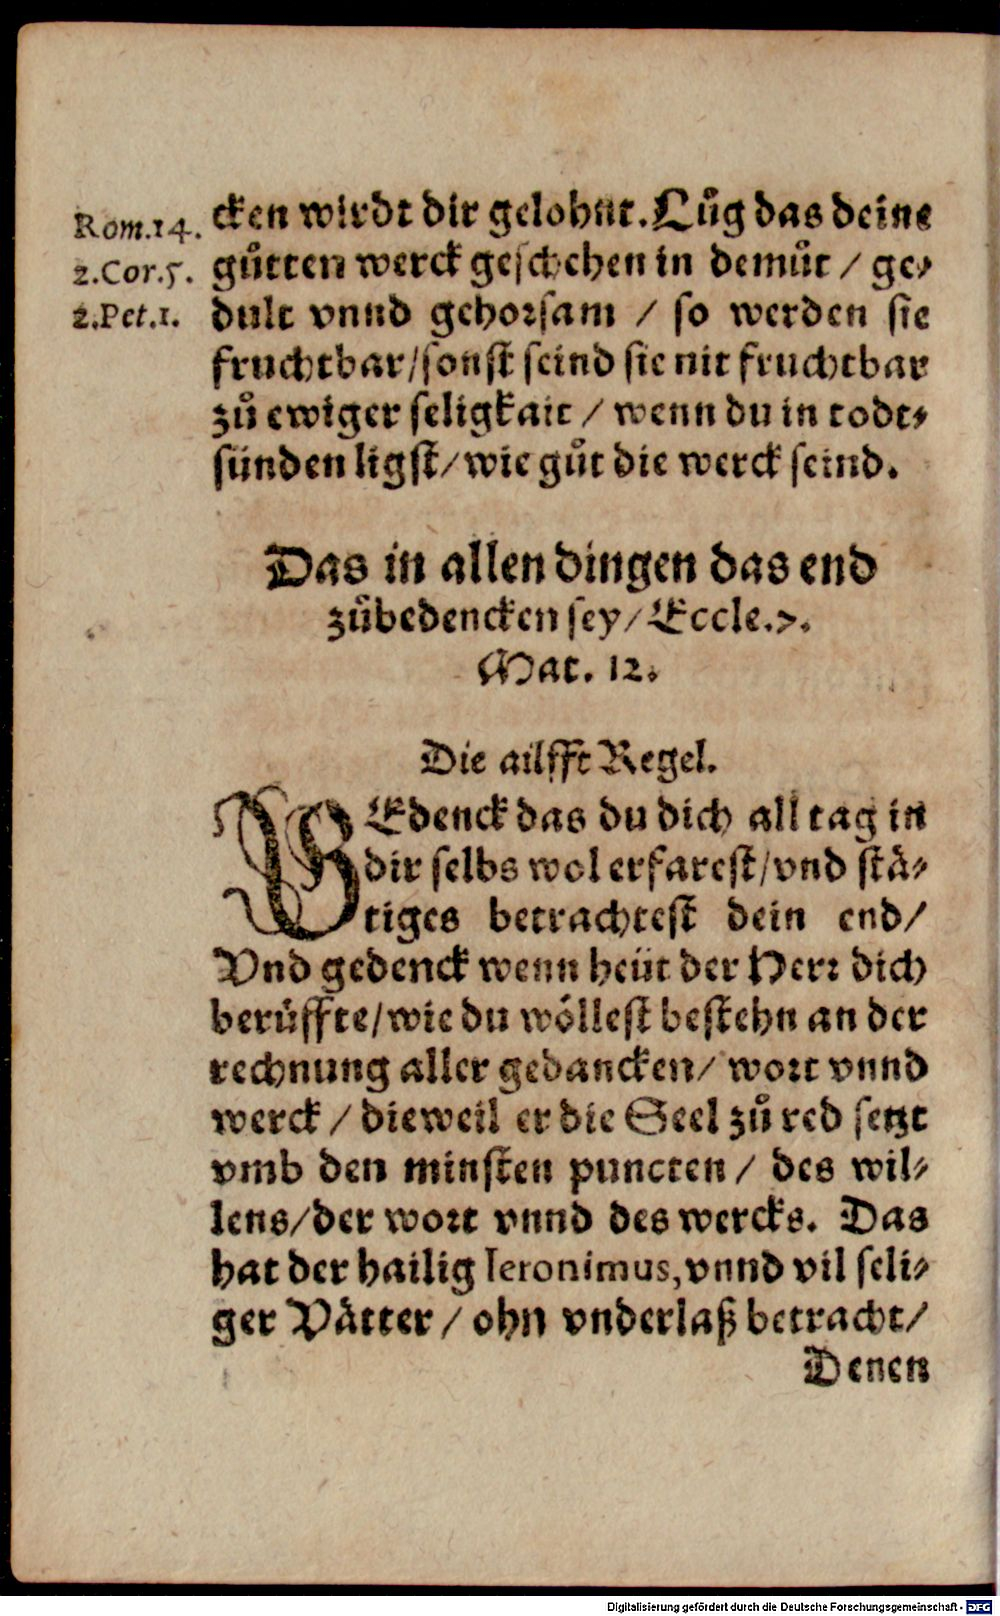 Rom.14.
2.Cor.5.
2.Pet.1.
cken wirdt dir gelohnt. Lůg das deine
gůtten werck geschehen in demůt / ge⸗
dult vnnd gehorsam / so werden sie
fruchtbar/sonst seind sie nit fruchtbar
zů ewiger seligkait / wenn du in todt⸗
sünden ligst/wie gůt die werck seind.
Das in allen dingen das end
zůbedencken sey/Eccle.7.
Mat. 12.
Die ailfft Regel.
BEdenck das du dich all tag in
dir selbs wol erfarest/vnd stå⸗
tiges betrachtest dein end/
Vnd gedenck wenn heüt der Herr dich
berůffte/wie du wöllest bestehn an der
rechnung aller gedancken/ wort vnnd
werck / dieweil er die Seel zů red setzt
vmb den minsten puncten / des wil⸗
lens/der wort vnnd des wercks. Das
hat der hailig Ieronimus,vnnd vil seli⸗
ger Våtter / ohn vnderlaß betracht/
Denen
Digitalisierung gefördert durch die Deutsche Forschungsgemeinschaft - DFG